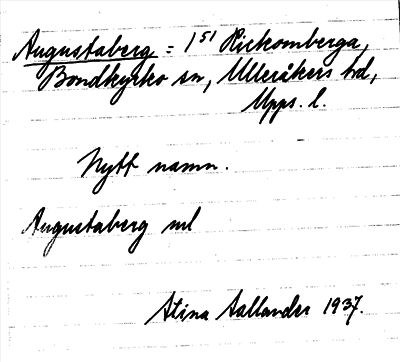 Augustaberg = 1 st Rickomberga,
Bondkyrko sn, Ulleråkers hd,
Upps. l.
Nytt namn.
Augustaberg ml
Stina Aallander 1937.